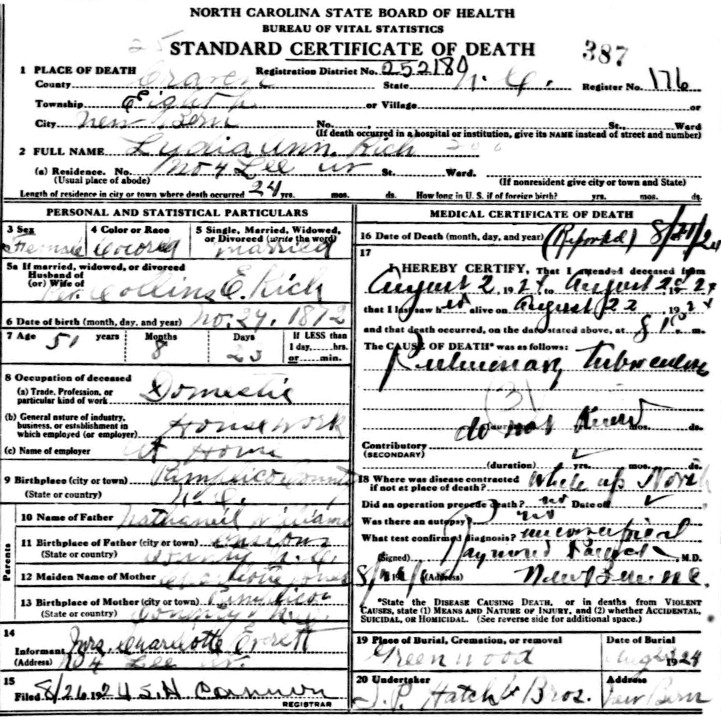 NORTH CAROLINA STATE BOARD OF HEALTH
BUREAU OF VITAL STATISTICS
STANDARD CERTIFICATE OF DEATH
387
1 PLACE OF DEATH
Registration District No. 252180
County Craven State N. C. Register No. 176
Township Eighth or Village or
City New Bern No. St., Ward
(If death occurred in a hospital or institution, give its NAME instead of street and number)
2 FULL NAME Lydia Ann Rich
(a) Residence. No. No 4 Lee St. Ward.
(Usual place of abode) (If nonresident give city or town and State)
Length of residence in city or town where death occurred 24 yrs. mos. ds. How long in U. S. if of foreign birth? yrs. mos. ds.
PERSONAL AND STATISTICAL PARTICULARS
3 Sex 4 Color or Race 5 Single, Married, Widowed, or Divorced (write the word)
Female Colored Married
5a If married, widowed, or divorced
Husband of
(or) Wife of
Collins E. Rich
6 Date of birth (month, day, and year) No. 29, 1872
7 Age 51 years Months 8 Days 23 If LESS than
1 day, hrs.
or min.
8 Occupation of deceased
(a) Trade, Profession, or
particular kind of work Domestic
(b) General nature of industry,
business, or establishment in
which employed (or employer) House work
(c) Name of employer At Home
9 Birthplace (city or town) Pamlico County
(State or country) N. C.
Parents
10 Name of Father Nathaniel Williams
11 Birthplace of Father (city or town)
(State or country) County N. C.
12 Maiden Name of Mother Charlotte Jones
13 Birthplace of Mother (city or town) Pamlico
(State or country) County N. C.
14
Informant Mrs. Charlotte Everett
(Address) No 4 Lee
15
Filed 8/26, 1924 S. H. Cannon
REGISTRAR
MEDICAL CERTIFICATE OF DEATH
16 Date of Death (month, day, and year) (Reported) 8/ /24
17
I HEREBY CERTIFY, That I attended deceased from
August 2, 1924, to August 1924
that I last saw h alive on August 22, 192
and that death occurred, on the date stated above, at 8 m.
The CAUSE OF DEATH* was as follows:
Pulmonary Tuberculosis
(31)
do not know mos. ds.
Contributory
(SECONDARY)
(duration) yrs. mos. ds.
18 Where was disease contracted
if not at place of death? While up North
Did an operation precede death? no Date of
Was there an autopsy? no
What test confirmed diagnosis?
(Signed) Raymond M. D.
(Address) New Bern N. C.
*State the DISEASE CAUSING DEATH, or in deaths from VIOLENT
CAUSES, state (1) MEANS AND NATURE OF INJURY, and (2) whether ACCIDENTAL,
SUICIDAL, or HOMICIDAL. (See reverse side for additional space.)
19 Place of Burial, Cremation, or removal Date of Burial
Greenwood Aug 1924
20 Undertaker Address
J. P. Hatch & Bros. New Bern